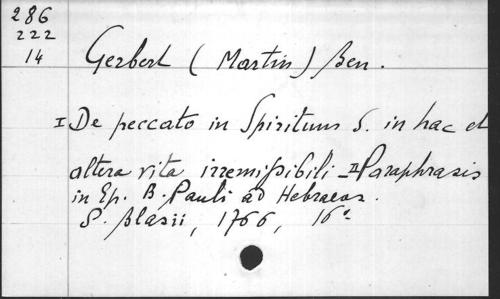 286
222
14
Gerbert (Martin) Ben.
I De peccato in Spiritum S. in hac et
altera vita irremissibili II Paraphrasis
in Ep. B. Pauli ad Hebraeos.
S. Blasii, 1766, 16°